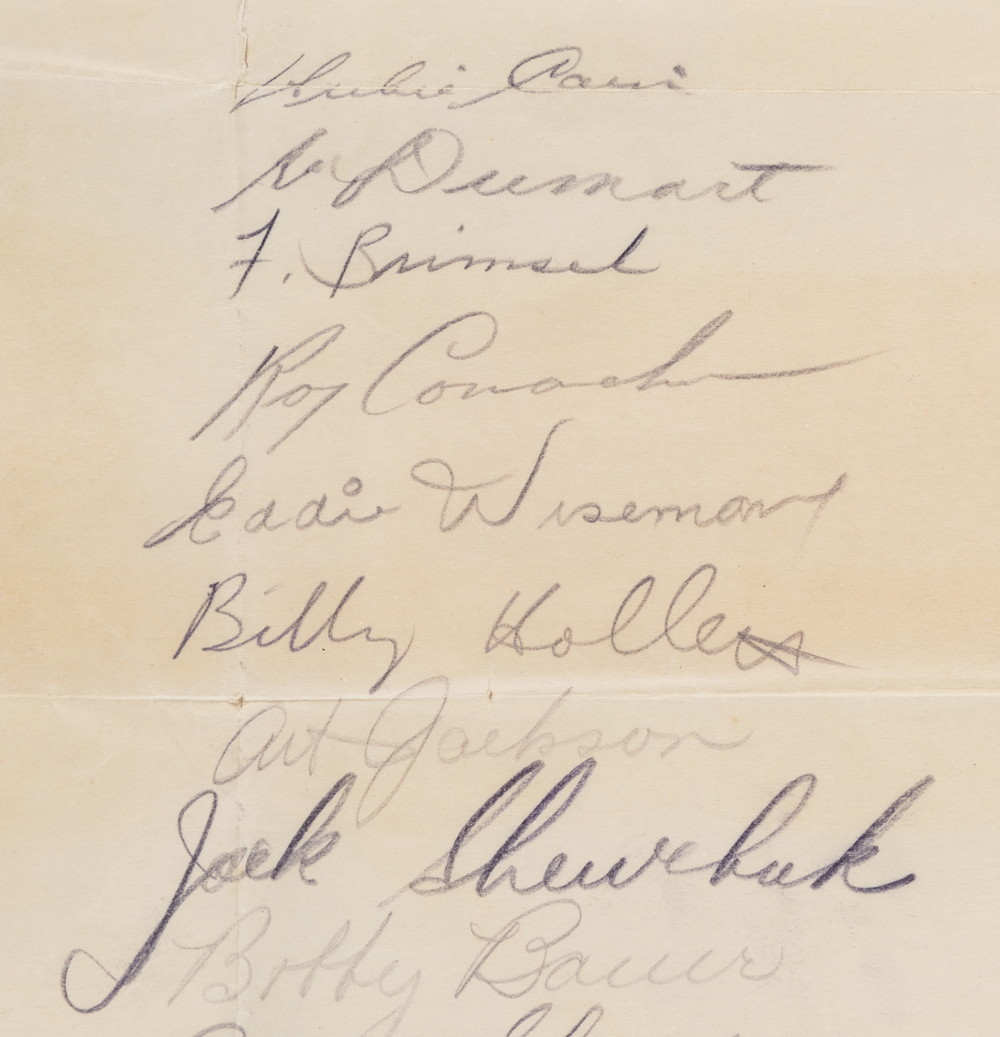 Herbie Cain
Dumart
F. Brimsek
Roy Conacher
Eddie Wiseman
Billy Hollett
Art Jackson
Jack Shewchuk
Bobby Bauer